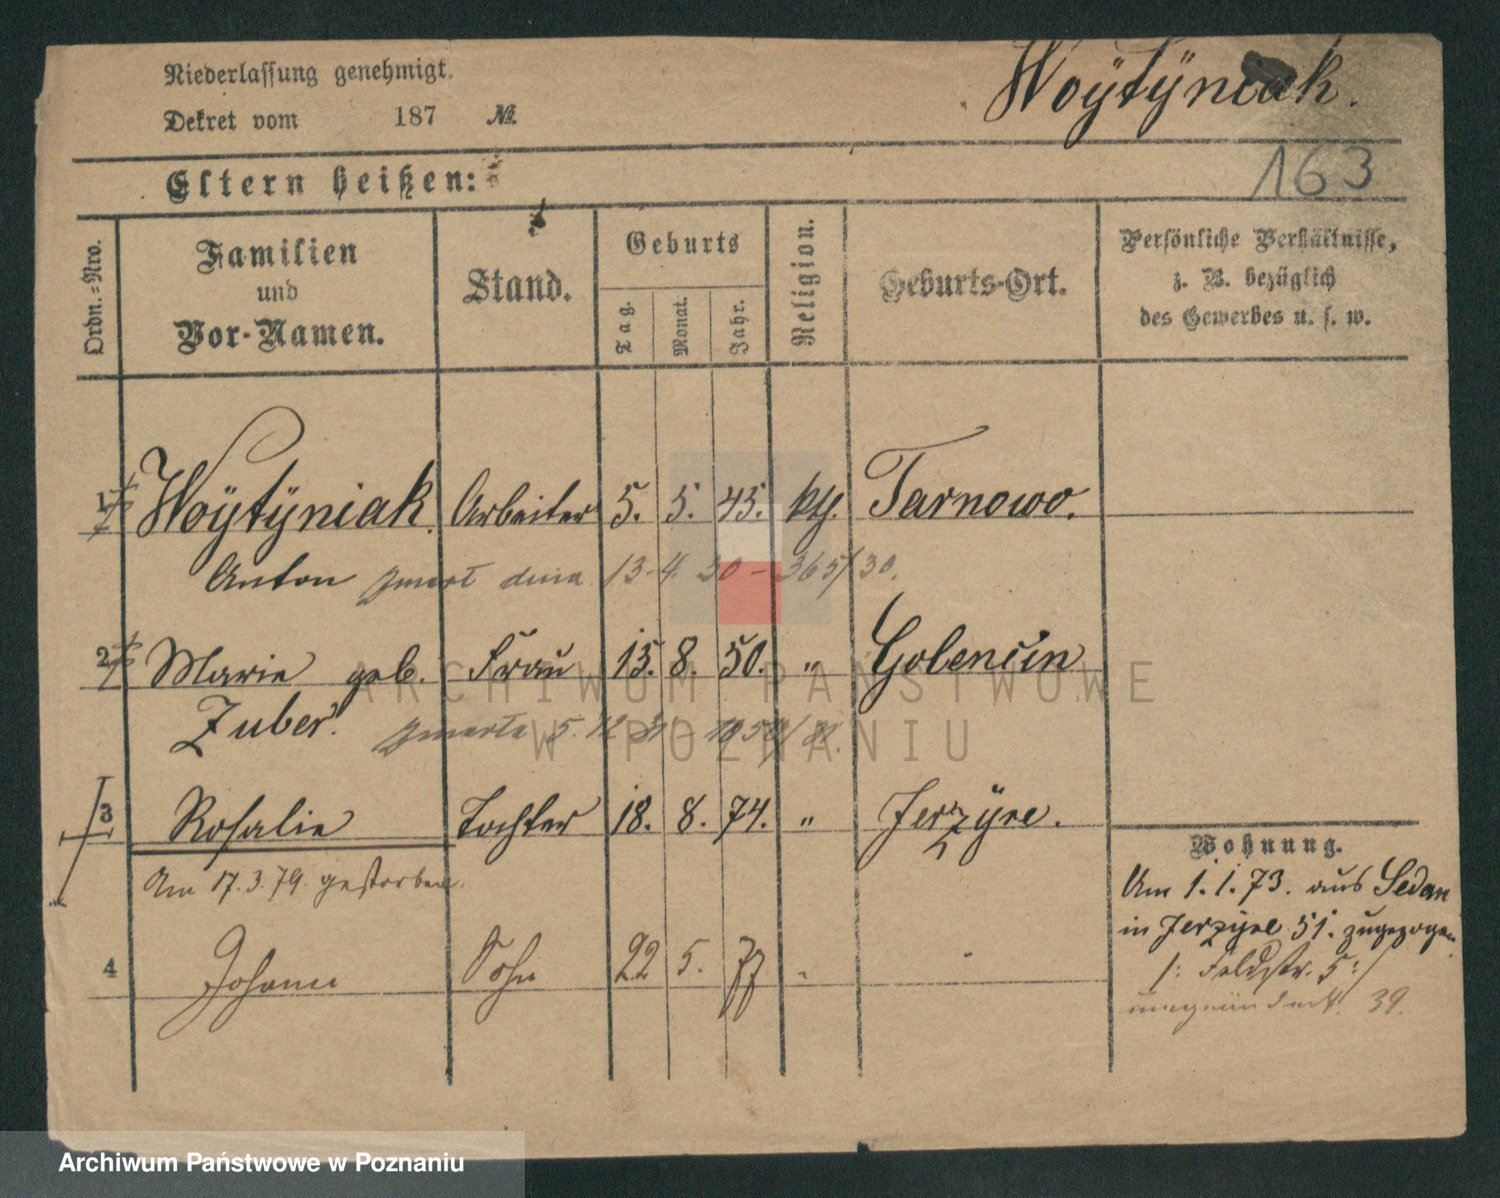 Niederlassung genehmigt.
Woÿtÿniak.
Dekret vom 187 №
163
Eltern heißen:
Ordn.-Nro.
Familien
und
Vor-Namen.
Stand.
Geburts
Tag.
Monat.
Jahr.
Religion.
Geburts-Ort.
Persönliche Verhältnisse,
z. B. bezüglich
des Gewerbes u. s. w.
1 Woÿtÿniak Arbeiter 5. 5. 45. kth. Tarnowo.
Anton zmarł dnia 13. 4. 30 - 365/30.
2 Marie geb. Frau 15. 8. 50. " Golencin
Zuber. zmarła 5. 12
3 Rosalie Tochter 18. 8. 74. " Jerzÿce.
Am 17. 3. 79. gestorben.
4 Johann Sohn 22 5. 77 "
Wohnung.
Am 1. 1. 73. aus Sedan
in Jerzyce 51. zugezogen
/: Feldstr. 5 :/
39.
ARCHIWUM PAŃSTWOWE
W POZNANIU
Archiwum Państwowe w Poznaniu